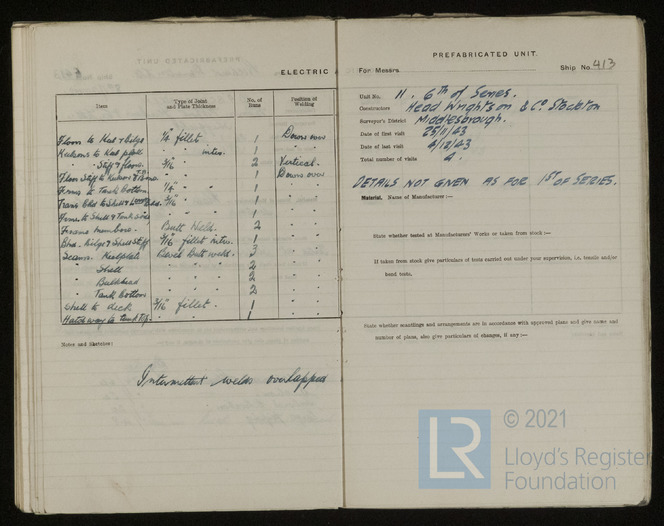 ELECTRIC
Item
Type of Joint and Plate Thickness
No. of Runs
Position of Welding
Floor to Keel & Bilge 1/4" fillet. 1 Down over
to Keel plate " " inter. 1 " "
" Stiff & floors. 3/16 2 Vertical.
Floor Stiff to 1 Down over
Frms to Tank Bottom 1/4" " 1 " "
Trans Bhd to Shell & 3/16" " 1 " "
Frms. to Shell & Tank side " " 1 " "
Frame members. Butt Welds. 2 " "
Bhd. Bilge & Shell Stiff 3/16" fillet inter. 1 " "
Seams. Keelplate Bevel Butt welds. 3 " "
" Shell " 2 " "
" Bulkhead " 2 " "
" Tank Bottom " 2 " "
Shell to deck 3/16" fillet. 1 " "
Hatchway to tank top. " " 1 " "
Notes and Sketches:
Intermittent welds overlapped
PREFABRICATED UNIT.
For Messrs.
Ship No. 413
Unit No. 11. 6th of Series.
Constructors Head Wrightson & Co Stockton
Surveyor's District Middlesbrough.
Date of first visit 25/11/43
Date of last visit 4/12/43
Total number of visits 4.
DETAILS NOT GIVEN AS FOR 1ST OF SERIES.
Material, Name of Manufacturer:—
State whether tested at Manufacturers' Works or taken from stock:—
If taken from stock give particulars of tests carried out under your supervision, i.e. tensile and/or
bend tests.
State whether scantlings and arrangements are in accordance with approved plans and give name and
number of plans, also give particulars of changes, if any:—
© 2021
LR
Lloyd's Register
Foundation